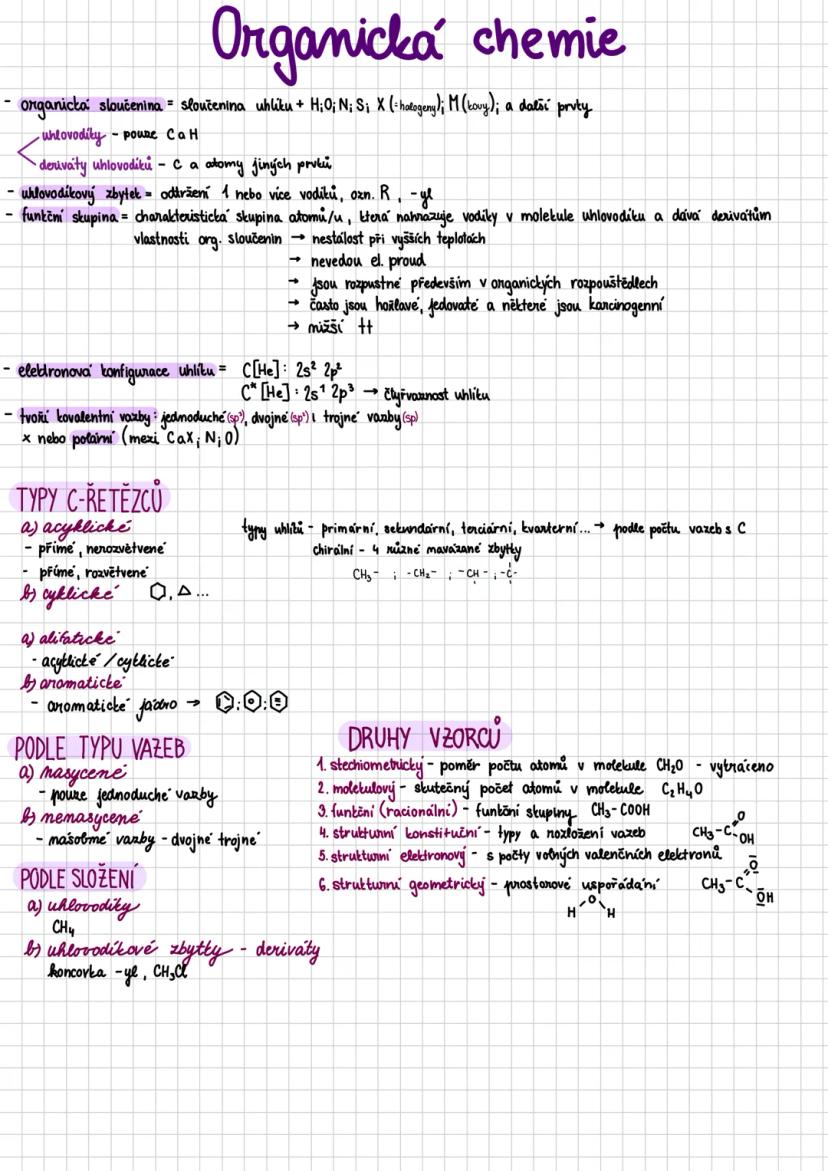 Organická chemie
- organická sloučenina = sloučenina uhlíku + H; O; N; S; X (=halogeny); M (kovy); a další prvky
uhlovodíky - pouze C a H
deriváty uhlovodíků - C a atomy jiných prvků
- uhlovodíkový zbytek = odtržení 1 nebo více vodíků, ozn. R, -yl
- funkční skupina = charakteristická skupina atomů/u, která nahrazuje vodíky v molekule uhlovodíku a dává derivátům
vlastnosti org. sloučenin → nestálost při vyšších teplotách
→ nevedou el. proud
→ jsou rozpustné především v organických rozpouštědlech
→ často jsou hořlavé, jedovaté a některé jsou karcinogenní
→ nižší tt
- elektronová konfigurace uhlíku = C[He]: 2s² 2p²
C* [He]: 2s¹ 2p³ → čtyřvaznost uhlíku
- tvoří kovalentní vazby: jednoduché (sp³), dvojné (sp²) i trojné vazby (sp)
x nebo polární (mezi C a X; N; O)
TYPY C-ŘETĚZCŮ
a) acyklické
- přímé, nerozvětvené
- přímé, rozvětvené
b) cyklické ...
typy uhlíků - primární, sekundární, terciární, kvarterní... → podle počtu vazeb s C
chirální - 4 různé navázané zbytky
CH₃- ; -CH₂- ; -CH- ; -C-
a) alifatické
- acyklické / cyklické
b) aromatické
- aromatické jádro → ; ;
PODLE TYPU VAZEB
a) nasycené
- pouze jednoduché vazby
b) nenasycené
- násobné vazby - dvojné trojné
PODLE SLOŽENÍ
a) uhlovodíky
CH₄
b) uhlovodíkové zbytky - deriváty
koncovka -yl, CH₃Cl
DRUHY VZORCŮ
1. stechiometrický - poměr počtu atomů v molekule CH₂O - vykráceno
2. molekulový - skutečný počet atomů v molekule C₂H₄O
3. funkční (racionální) - funkční skupiny CH₃-COOH
4. strukturní konstituční - typy a rozložení vazeb CH₃-C O OH
5. strukturní elektronový - s počty volných valenčních elektronů
CH₃-C O OH
6. strukturní geometrický - prostorové uspořádání
H O H